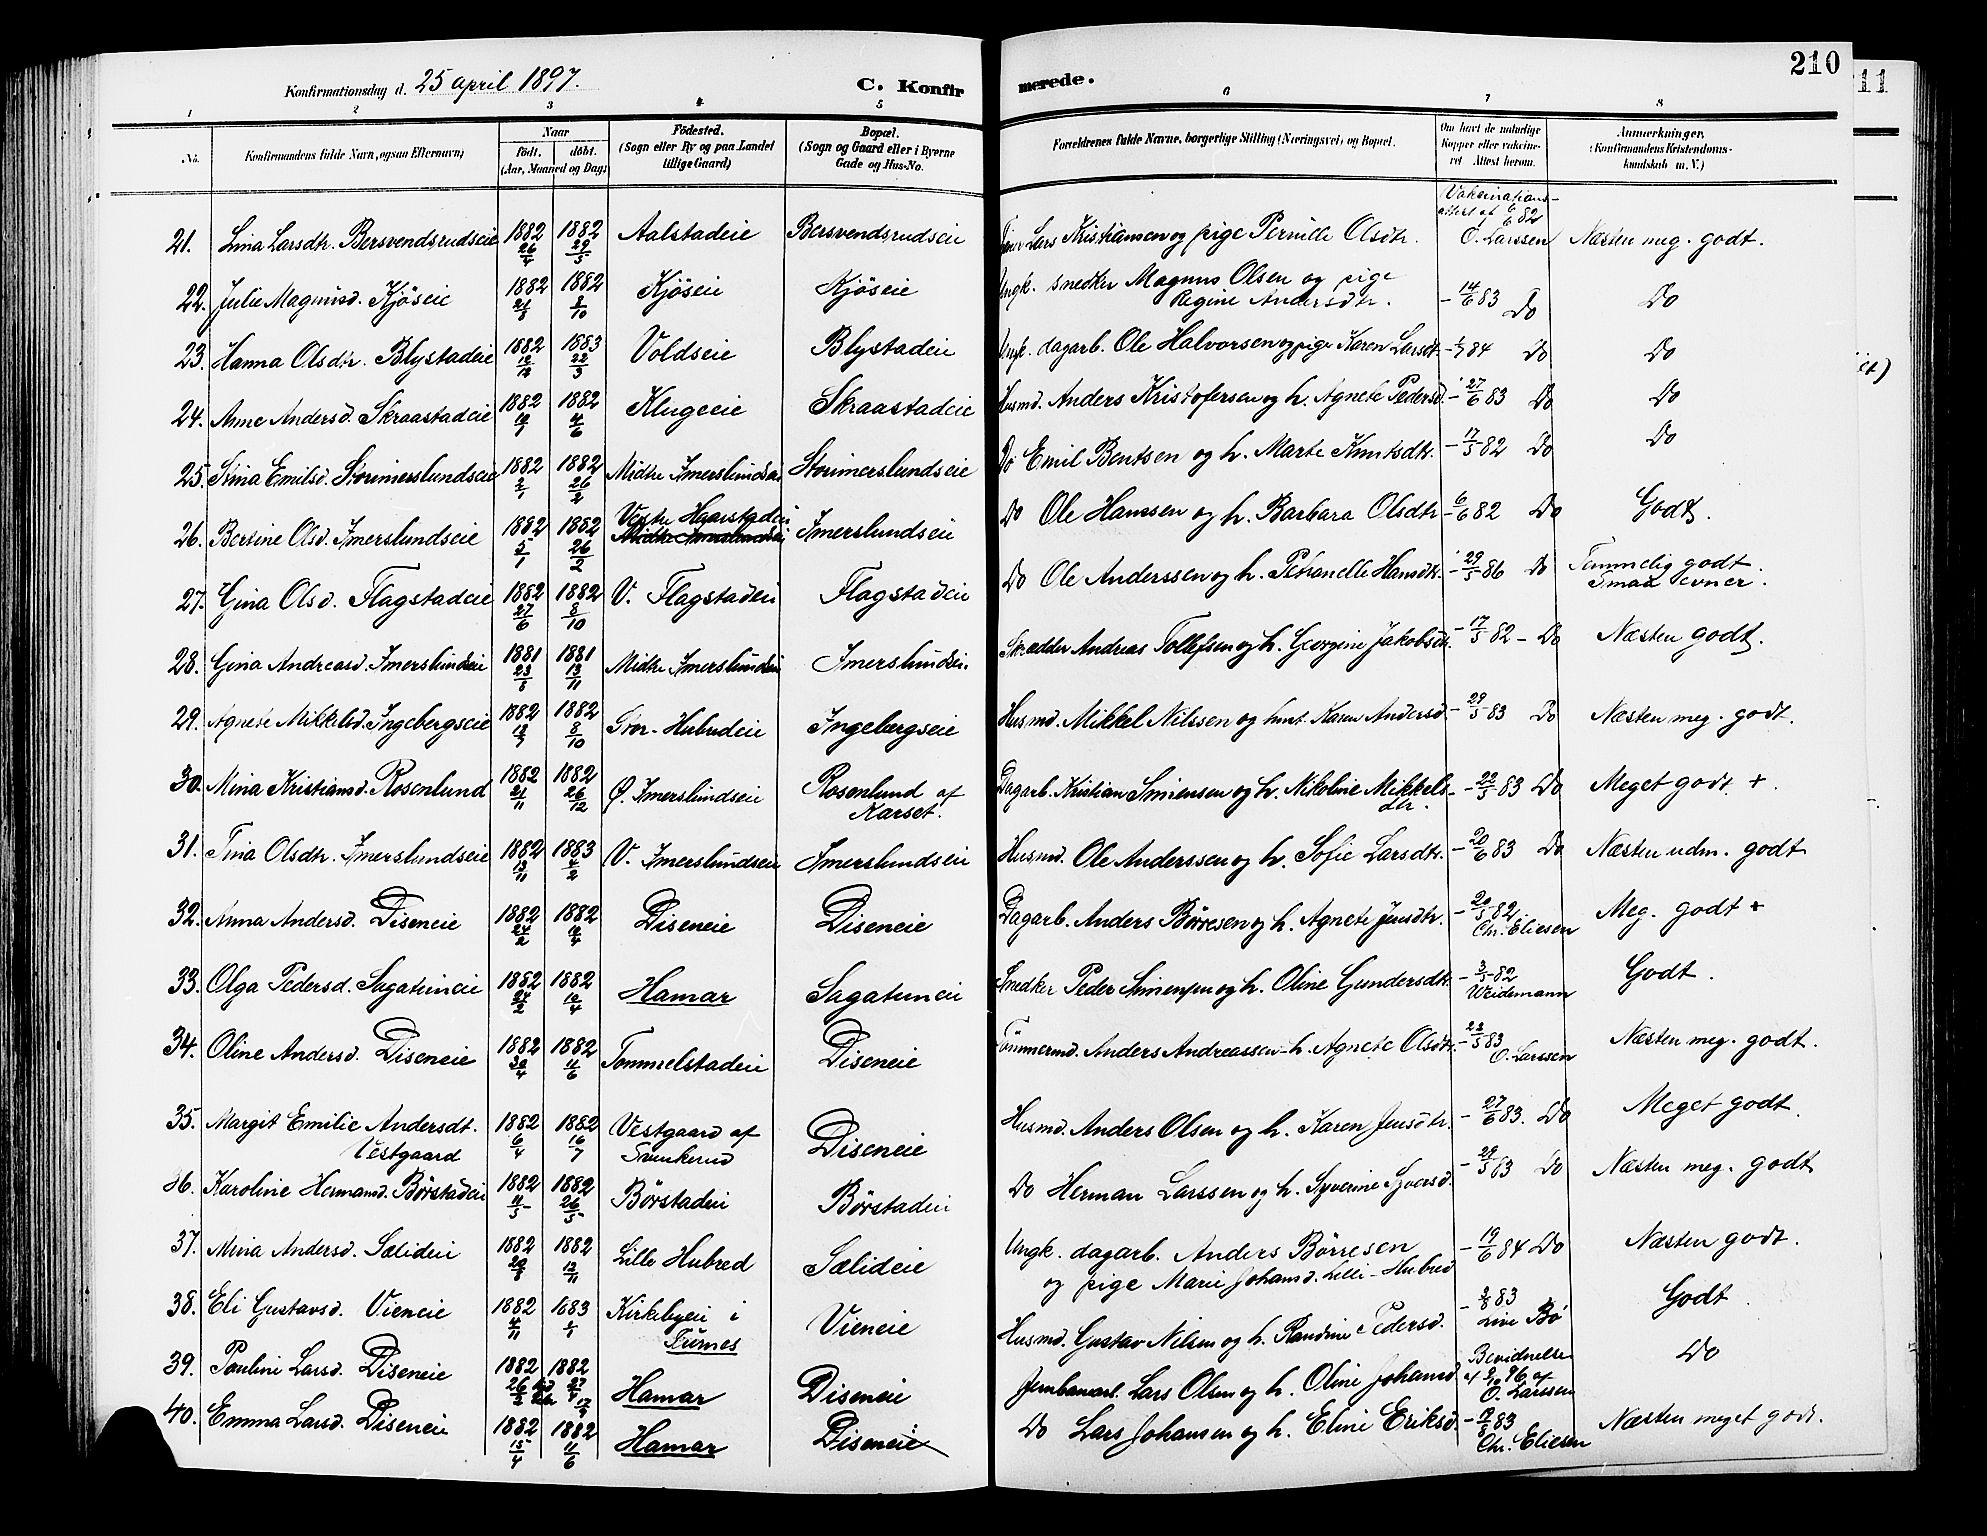 210
11
Konfirmationsdag d. 25 april 1897.
C. Konfirmerede.
1 2 3 4 5 6 7 8
No. Konfirmandens fulde Navn, ogsaa Efternavn) Naar født. døbt. (Aar, Maaned og Dag) Födested. (Sogn eller By og paa Landet tillige Gaard) Bopæl. (Sogn og Gaard eller i Byerne Gade og Hus-No. Forældrenes fulde Navne, borgerlige Stilling (Næringsvei) og Bopæl. Om havt de naturlige Kopper eller vaksineret. Attest herom. Anmærkninger. (Konfirmandens Kristendomskundskab m. V.)
21. Lina Larsdtr. Bersvendsrudseie 1882 26/4 1882 29/5 Aalstadeie Bersvendsrudseie Lars Kristiansen og pige Pernille Olsdtr. Vaksinations-attest af 6/6 82 O. Larssen Næsten meg. godt.
22. Julie Magnusd. Kjöseie 1882 21/8 1882 8/10 Kjöseie Kjöseie Ungk. snedker Magnus Olsen og pige Regine Andersdtr. - 14/6 83 Do Do
23. Hanna Olsdtr. Blystadeie 1882 12/12 1883 22/3 Voldseie Blystadeie Ungk. dagarb. Ole Halvorsen og pige Karen Larsdt. - 1/7 84 Do Do
24. Anne Andersd. Skraastadeie 1882 1882 4/6 Klugeeie Skraastadeie Husmd. Anders Kristofersen og h. Agnete Pedersd. - 27/6 83 Do Do
25. Stina Emilsd. Storimerslundseie 1882 2/1 1882 26/2 Midtre Imerslundseie Storimerslundseie Do Emil Bentsen og h. Marte Knutsdtr. - 17/5 82 Do Do
26. Bertine Olsd. Imerslundseie 1882 5/1 1882 26/2 Vestre Haarstadeie Midtre Imerslundseie Imerslundseie Do Ole Hanssen og h. Barbara Olsdtr - 6/6 82 Do Godt.
27. Gina Olsd. Flagstadeie 1882 27/6 1882 8/10 V. Flagstadeie Flagstadeie Do Ole Anderssen og h. Petranelle Hansdtr. - 29/5 86 Do Temmelig godt. Smaa evner.
28. Gina Andreasd. Imerslundseie 1881 1881 13/11 Midtre Imerslundseie Imerslundseie. Skrædder Andreas Tollefsen og h. Georgine Jakobsdtr. - 17/5 82 - Do Næsten godt.
29. Agnete Mikkelsd. Ingebergseie 1882 1882 8/10 Stor-Hubudeie Ingebergseie Husmd. Mikkel Nilssen og hust. Karen Andersd. - 29/5 83 Do Næsten meg. godt.
30. Mina Kristiansd. Rosenlund 1882 21/11 1882 26/12 Ø. Imerslundseie Rosenlund af Karset. Dagarb. Kristian Simensen og h. Nikoline Mikkels-dtr. - 22/5 83 Do Meget godt. +
31. Tina Olsdtr. Imerslundseie 1882 13/11 1883 4/2 V. Imerslundseie Imerslundseie Husmd. Ole Anderssen og h. Sofie Larsdtr. - 20/6 83 Do Næsten udm. godt
32. Anna Andersd. Diseneie 1882 24/2 1882 Diseneie Diseneie Dagarb. Anders Börresen og h. Agnete Jensdtr. - 20/5 82. Chr. Eliesen Meg. godt +
33. Olga Pedersd. Sagatuneie 1882 24/2 1882 Hamar Sagatuneie Snedker Peder Simensen og h. Oline Gundersdtr. - 3/5 82 Weidemann Godt.
34. Oline Andersd. Diseneie 1882 30/4 1882 11/6 Tommelstadeie Diseneie Tömmermd. Anders Andreassen - h. Agnete Olsdtr. - 23/5 83 O. Larssen Næsten meg. godt.
35. Margit Emilie Andersdt. Vestgaard 1882 6/4 1882 16/7 Vestgaard af Svenkerud Diseneie Husmd. Anders Olsen og h. Karen Jensdtr. - 27/6 83. Do Meget godt.
36. Karoline Hermansd. Börstadeie 1882 11/5 1882 26/5 Börstadeie Börstadeie Do Herman Larssen og h. Syverine Syversd. - 29/5 83 Do Næsten meg. godt
37. Mina Andersd. Sælideie 1882 20/8 1882 12/11 Lille Hubred Sælideie Ungk. dagarb. Anders Börresen og pige Marie Johansd. Lille-Hubred - 19/6 84 Do Næsten godt.
38. Eli Gustavsd. Vieneie 1882 4/11 1883 1/1 Kirkebyeie i Furnes Vieneie Husmd. Gustav Nilsen og h. Randine Pedersd. - 2/8 83 Live Bö Godt
39. Pauline Larsd. Diseneie 1882 26/2 1882 Hamar Diseneie Jernbanearb. Lars Olsen og h. Oline Johansd. Bevidnelse af 9/10 96 af O. Larssen Do
40. Emma Larsd. Diseneie 1882 15/4 1882 11/6 Hamar Diseneie Do Lars Johansen og h. Eline Eriksd. - 83 Chr. Eliesen Næsten meget godt.